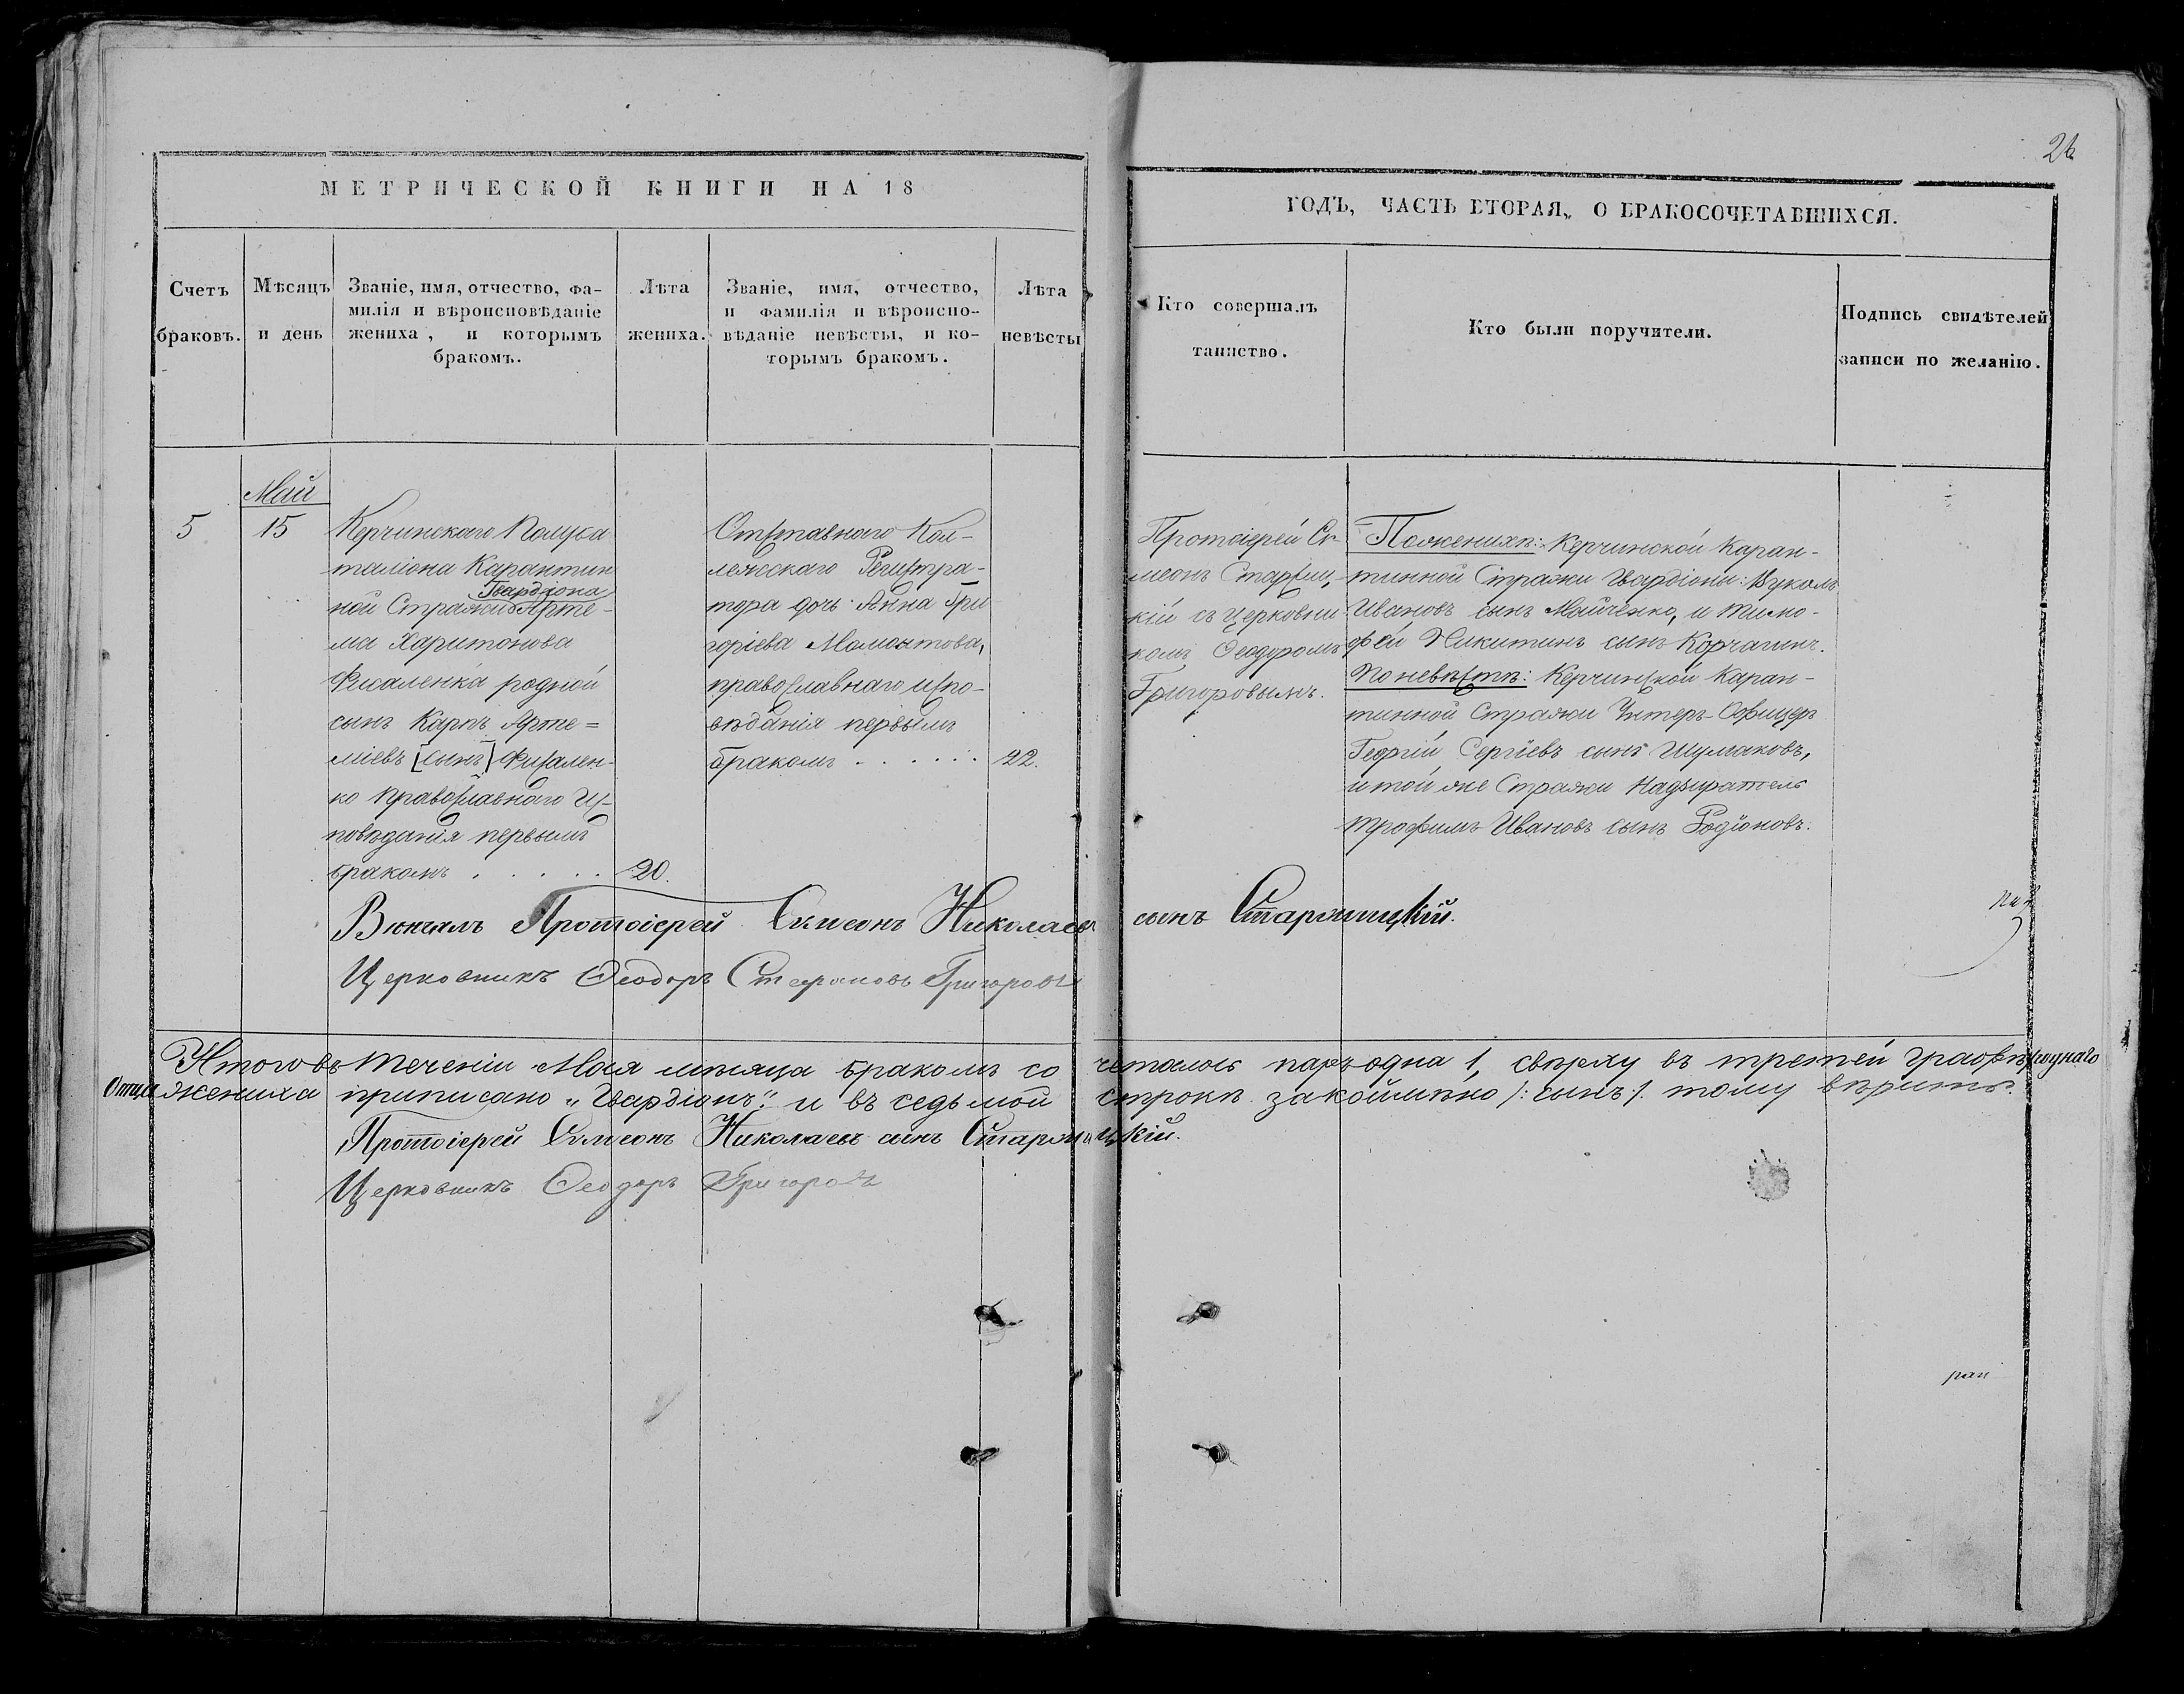 26
МЕТРИЧЕСКОЙ КНИГИ НА 18
ГОДЪ, ЧАСТЬ ВТОРАЯ, О БРАКОСОЧЕТАВШИХСЯ.
Счетъ
браковъ.
Мѣсяцъ
и день
Званіе, имя, отчество, фа-
милія и вѣроисповѣданіе
жениха, и которымъ
бракомъ.
Лѣта
жениха.
Званіе, имя, отчество,
и фамилія и вѣроиспо-
вѣданіе невѣсты, и ко-
торымъ бракомъ.
Лѣта
невѣсты
Кто совершалъ
таинство.
Кто были поручители.
Подпись свидѣтелей
записи по желанію.
Май
5
15
Керчинскаго Полуба
таліона Карантин
Гвардіона
ной Стражи Арте-
ма Харитонова
Фисаленка родной
сынъ Карпъ Арте=
міевъ [сынъ] Фисален-
ко Православнаго Ис-
повѣданія первымъ
бракомъ . . . . .
20.
Отставнаго Кол-
лежскаго Регистра-
тора дочь Анна Гри
горіева Мамонтова,
православнаго испо-
вѣданія первымъ
бракомъ . . . . . .
22.
Протоіерей Си-
меонъ
кій съ Церковни
комъ Феодоромъ
Григоровымъ.
По женихѣ: Керчинской Каран-
тинной Стражи Гвардіоны: Вуколъ
Ивановъ сынъ Мойченко, и Тимо-
фей Никитинъ сынъ Корчагинъ.
По невѣстѣ: Керчинской Каран-
тинной Стражи Унтеръ-Офицеръ
Георгій Сергіевъ сынъ Шумаковъ,
и той же Стражи Надзиратель
Трофимъ Ивановъ сынъ Родіоновъ.
Вѣнчалъ Протоіерей Симеонъ Николаевъ сынъ
Церковникъ Феодоръ Стефановъ Григоровъ
Итого въ теченіи Мая мѣсяца бракомъ со четалось паръ одна 1, сверху въ третей графѣ роднаго
Отца жениха приписано „Гвардіонъ" и въ седьмой строкѣ закоймлѣно /: сынъ :/ тому вѣрить.
Протоіерей Симеонъ Николаевъ сынъ
Церковникъ Феодоръ Григоровъ